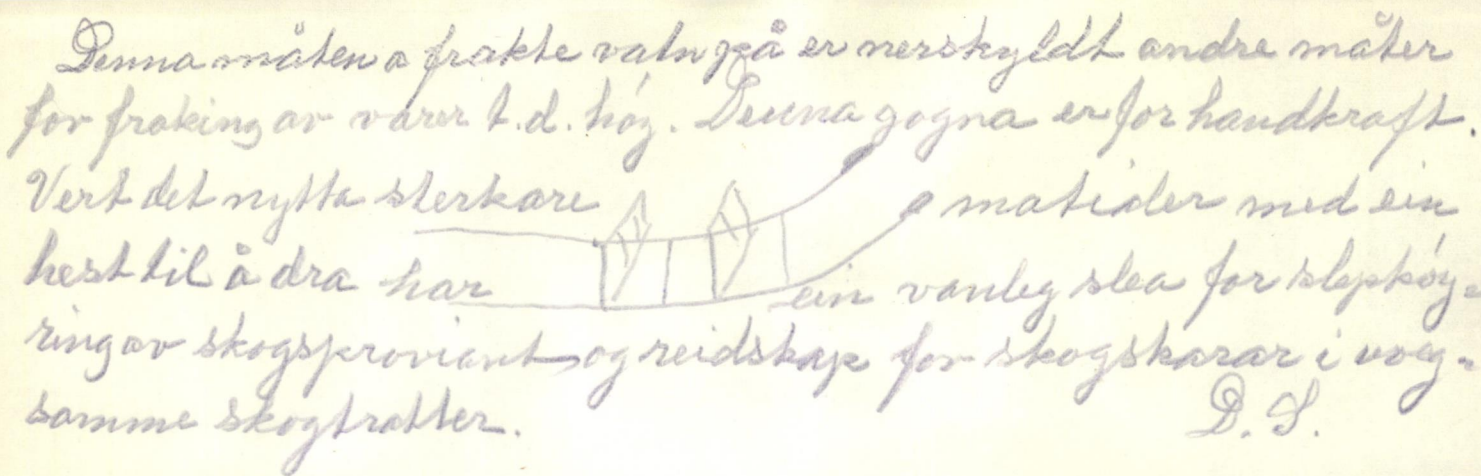 Denna måten a frakte vatn på er nerskyldt andre måter
for fraking av varer t.d. høy. Denna gogna er for handkraft.
Vert det nytta sterkare matider med ein
hest til å dra har ein vanleg slea for slepkøy-
ring av skogsproviant og reidskap for skogskarar i
samme skogtratter. D. S.